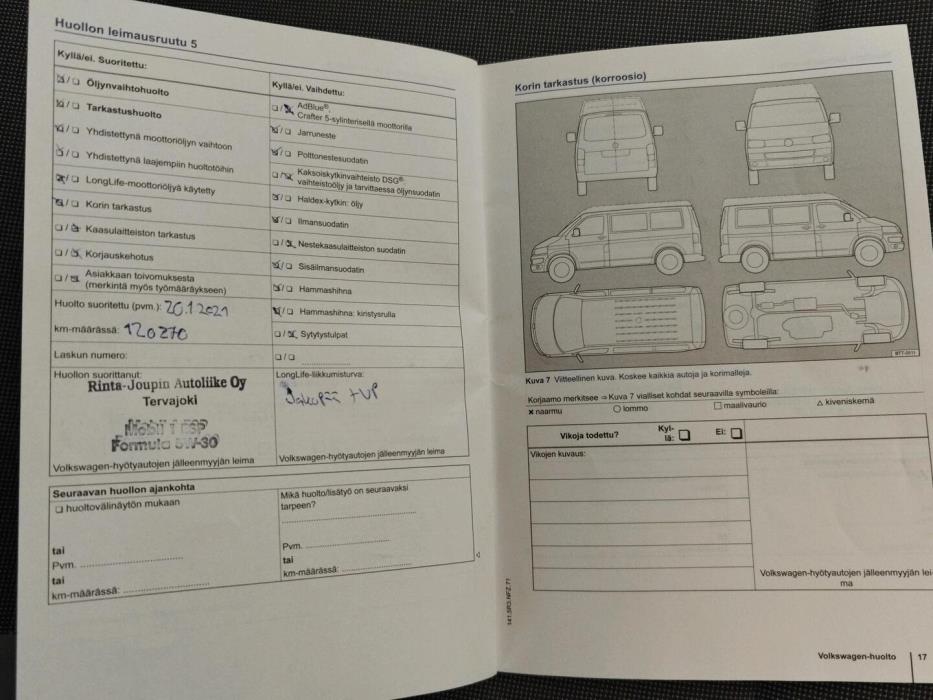 Huollon leimausruutu 5
Kyllä/ei. Suoritettu:
☒/❑ Öljynvaihtohuolto
☒/❑ Tarkastushuolto
☒/❑ Yhdistettynä moottoriöljyn vaihtoon
☒/❑ Yhdistettynä laajempiin huoltotöihin
☒/❑ LongLife-moottoriöljyä käytetty
☒/❑ Korin tarkastus
❑/☒ Kaasulaitteiston tarkastus
❑/☒ Korjauskehotus
❑/☒ Asiakkaan toivomuksesta
(merkintä myös työmääräykseen)
Huolto suoritettu (pvm.): 20.1.2021
km-määrässä: 120270
Laskun numero:
Huollon suorittanut:
Rinta-Joupin Autoliike Oy
Tervajoki
Mobil 1 ESP
Formula 5W-30
Volkswagen-hyötyautojen jälleenmyyjän leima
Kyllä/ei. Vaihdettu:
❑/☒ AdBlue®
Crafter 5-sylinterisellä moottorilla
☒/❑ Jarruneste
☒/❑ Polttonestesuodatin
❑/☒ Kaksoiskytkinvaihteisto DSG®:
vaihteistoöljy ja tarvittaessa öljynsuodatin
☒/❑ Haldex-kytkin: öljy
☒/❑ Ilmansuodatin
❑/☒ Nestekaasulaitteiston suodatin
☒/❑ Sisäilmansuodatin
☒/❑ Hammashihna
☒/❑ Hammashihna: kiristysrulla
❑/☒ Sytytystulpat
❑/❑
LongLife-liikkumisturva:
Jakopää + VP
Volkswagen-hyötyautojen jälleenmyyjän leima
Seuraavan huollon ajankohta
❑ huoltovälinäytön mukaan
tai
Pvm.
tai
km-määrässä:
Mikä huolto/lisätyö on seuraavaksi
tarpeen?
Pvm.
tai
km-määrässä:
Korin tarkastus (korroosio)
Kuva 7 Viitteellinen kuva. Koskee kaikkia autoja ja korimalleja.
Korjaamo merkitsee ⇒ Kuva 7 vialliset kohdat seuraavilla symboleilla:
✕ naarmu ○ lommo □ maalivaurio △ kiveniskemä
Vikoja todettu? Kyl-
lä: ❑ Ei: ❑
Vikojen kuvaus:
Volkswagen-hyötyautojen jälleenmyyjän lei-
ma
141.5R3.NFZ.71
Volkswagen-huolto 17